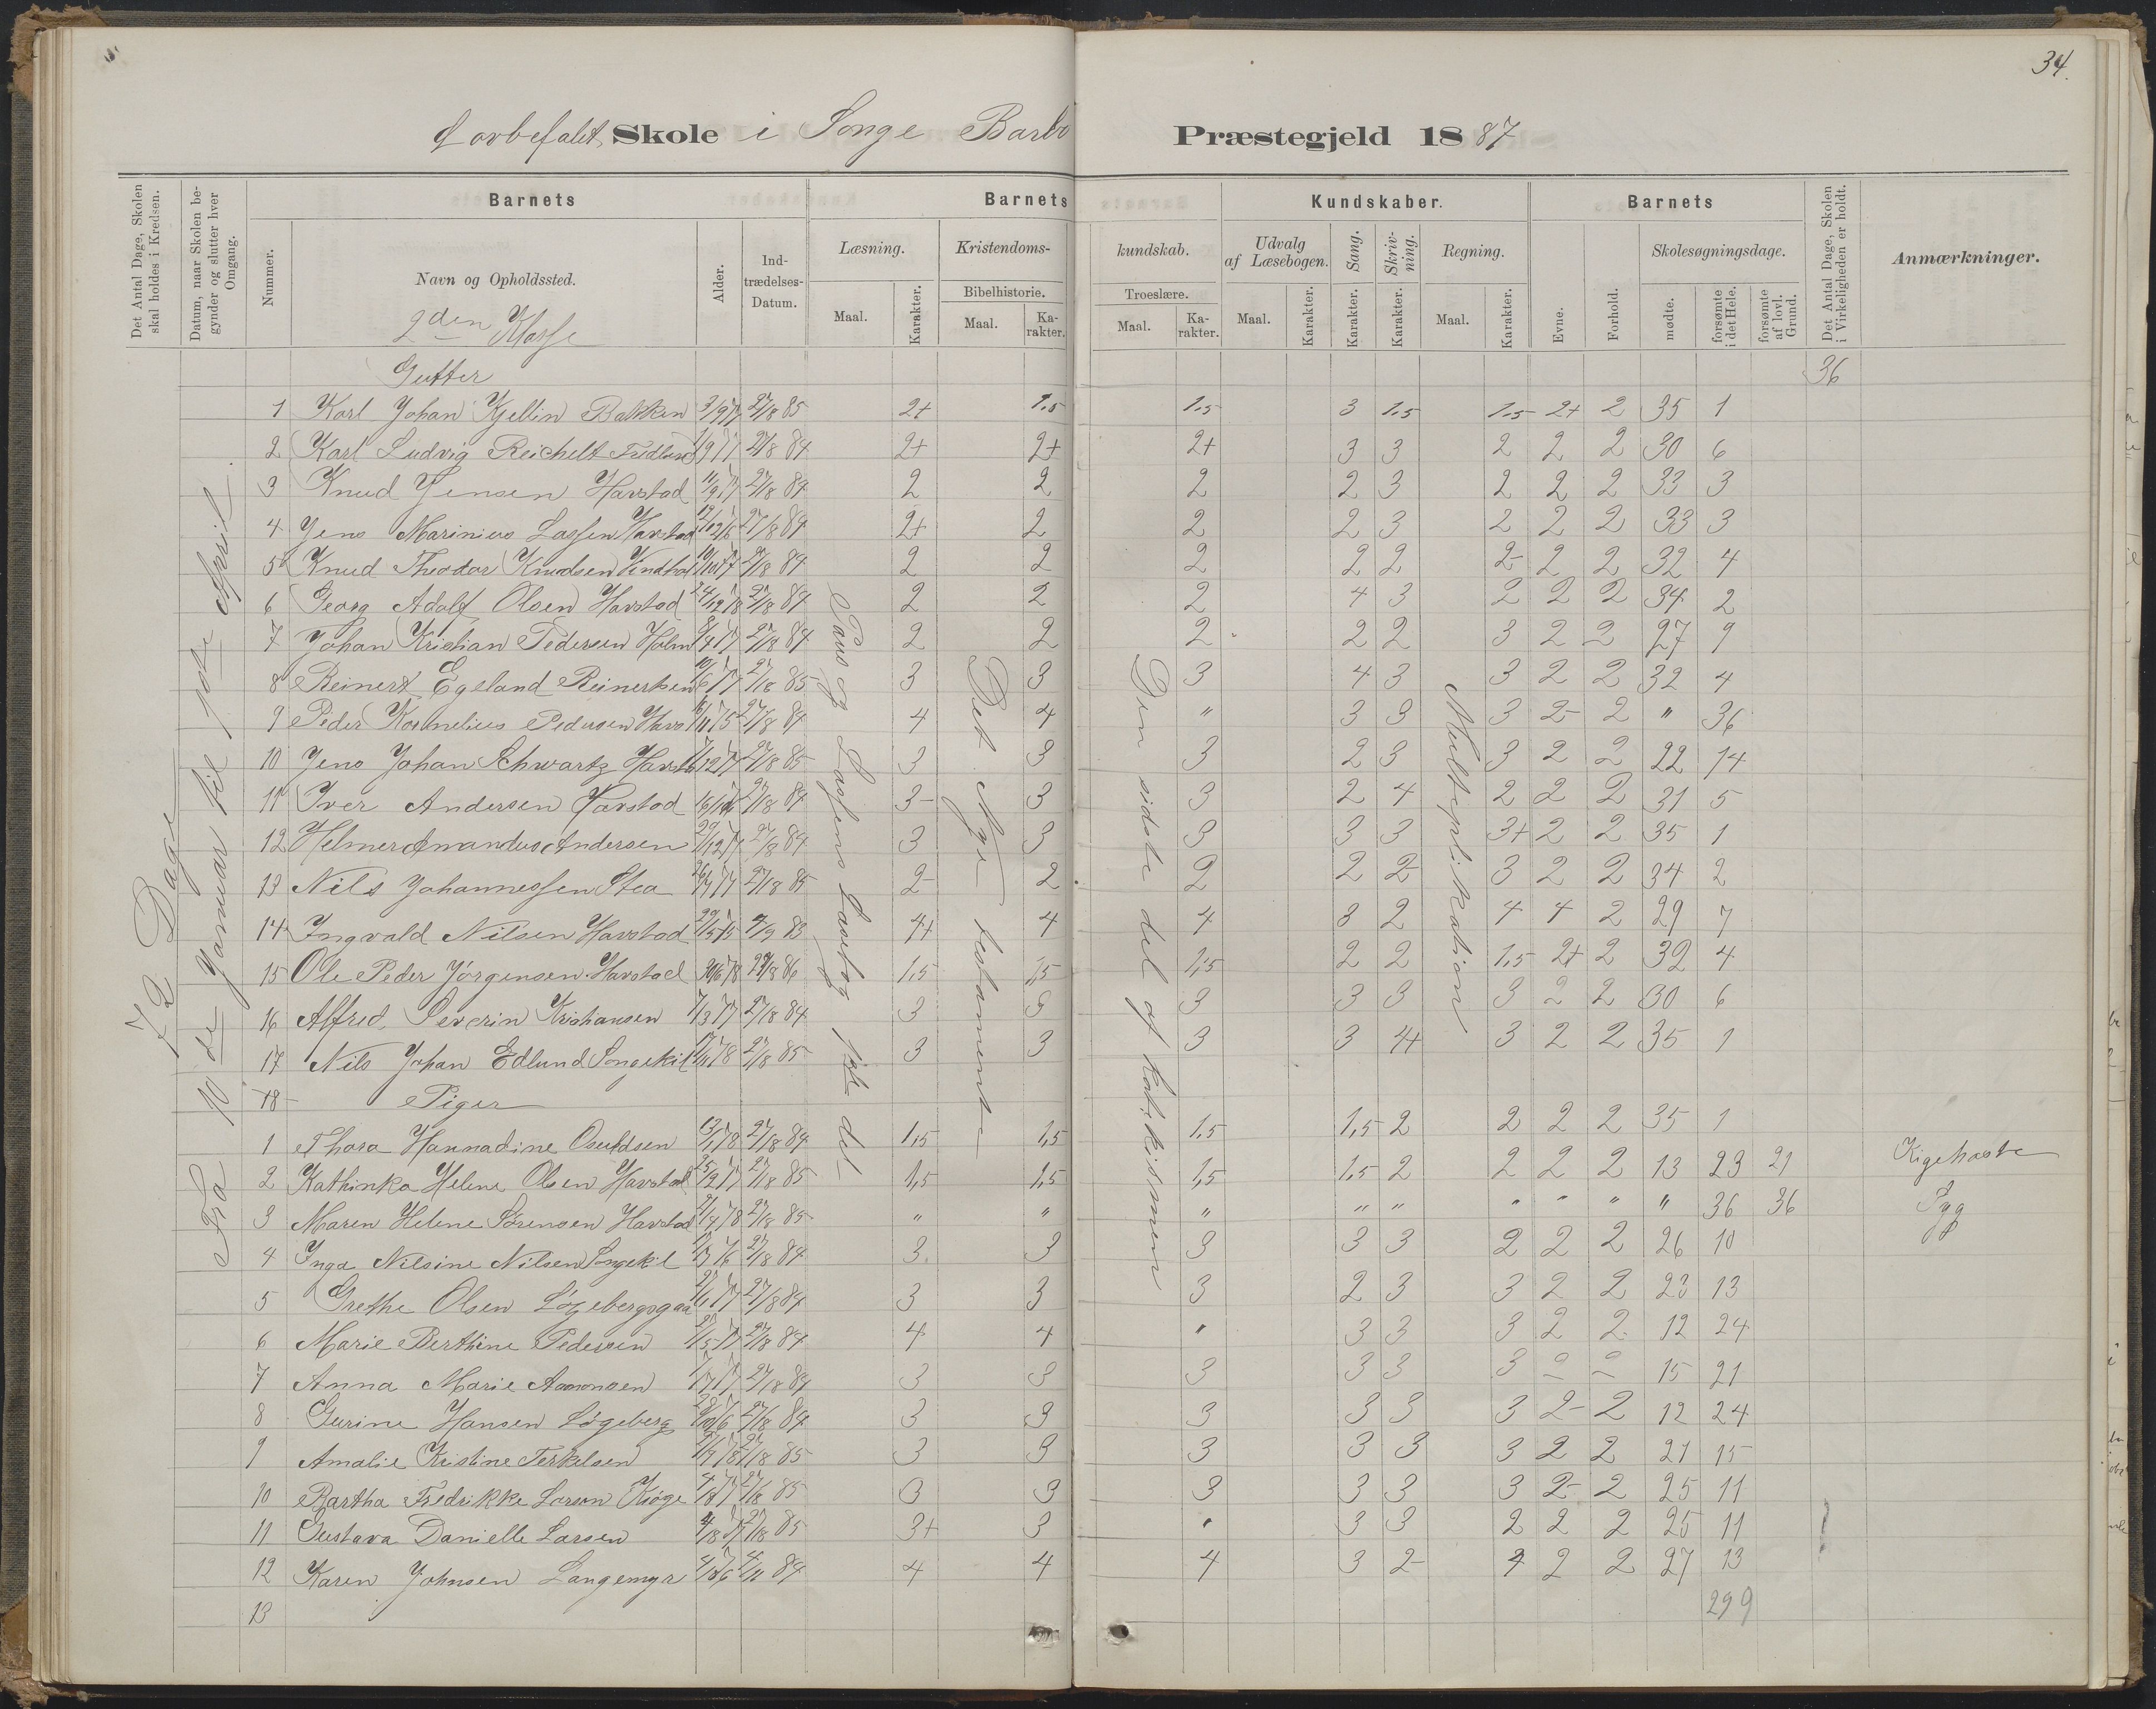 34.
Skole i Songe Barbo Præstegjeld 1887
Det Antal Dage, Skolen skal holdes i Kredsen.
Datum, naar Skolen begynder og slutter hver Omgang.
Nummer.
Barnets
Navn og Opholdssted.
Alder.
Indtrædelses-Datum.
Barnets Kundskaber.
Læsning. Maal. Karakter.
Kristendomskundskab.
Bibelhistorie. Maal. Karakter.
Troeslære. Maal. Karakter.
Udvalg af Læsebogen. Maal. Karakter.
Sang. Karakter.
Skrivning. Karakter.
Regning. Maal. Karakter.
Barnets
Evne. Forhold.
Skolesøgningsdage.
mødte. forsømte i det Hele. forsømte af lovl. Grund.
Det Antal Dage, Skolen i Virkeligheden er holdt.
Anmærkninger.
2den Klasse
Gutter 36
72 Dage
Fra 10de Januar til 1ste April.
Det Nye testamente
Den sidste del af
1 Karl Johan Kjellin Bakken 27/8 85 2+ 1.5 1.5 3 1.5 1.5 2+ 2 35 1
2 Karl Ludvig Reichelt 27/8 84 2+ 2+ 2+ 3 3 2 2 2 30 6
3 Knud Jensen Havstad 27/8 84 2 2 2 2 3 2 2 2 33 3
4 Jens Marinius Lassen Havstad 27/8 84 2+ 2 2 2 3 2 2 2 33 3
5 Knud Theodor Knudsen 27/8 84 2 2 2 2 2 2- 2 2 32 4
6 Georg Adolf Olsen Havstad 27/8 84 2 2 2 4 3 2 2 2 34 2
7 Johan Kristian Pedersen Holm 27/8 84 2 2 2 2 2 3 2 2 27 9
8 Reinert Egeland Reinertsen 27/8 85 3 3 3 4 3 3 2 2 32 4
9 Peder Kornelius Pedersen Havs 27/8 84 4 4 " 3 3 3 2- 2 " 36
10 Jens Johan Schwartz 27/8 85 3 3 3 2 3 3 2 2 22 14
11 Iver Andersen Havstad 27/8 84 3- 3 3 2 4 2 2 2 31 5
12 Helmer Amandus Andersen 27/8 84 3 3 3 3 3 3+ 2 2 35 1
13 Nils Johannessen Stea 27/8 85 2- 2 2 2 2- 3 2 2 34 2
14 Ingvald Nilsen Havstad 83 4+ 4 4 3 2 4 4 2 29 7
15 Ole Peder Jörgensen Havstad 86 1,5 1,5 1,5 2 2 1,5 2+ 2 32 4
16 Alfred Severin Kristiansen 27/8 84 3 3 3 3 3 3 2 2 30 6
17 Nils Johan Edlund Songekil 27/8 85 3 3 3 3 4+ 3 2 2 35 1
18 Piger
1 Thora Hannadine Osuldsen 27/8 84 1,5 1,5 1.5 1,5 2 2 2 2 35 1
2 Kathinka Helene Olsen Havstad 27/8 85 1,5 1,5 1,5 1.5 2 2 2 2 13 23 21 Kighoste
3 Maren Helene Sörensen Havstad 27/8 85 " " " " " " " " " 36 36 Syg
4 Inga Nilsine Nilsen Songekil 27/8 84 3. 3 3 3 3 2 2 2 26 10
5 Grethe Olsen 27/8 84 3 3 3 2 3 3 2 2 23 13
6 Marie Berthine Pedersen 27/8 84 4 4 " 3 3 3 2 2 12 24
7 Anna Marie Aamonsen 27/8 84 3 3 3 3 3 3 2 2 15 21
8 Gurine Hansen Lögeberg 27/8 84 3 3 3 3 3 3 2- 2 12 24
9 Amalie Kristine Terkelsen 27/8 85 3 3 3 3 3 3 2 2 21 15
10 Bartha Fredrikke Larsen 27/8 85 3 3 3 3 3 3 2- 2 25 11
11 Gustava Danielle Larsen 27/8 85 3+ 3 " 3 3 2 2 2 25 11
12 Karen Johnsen Langemyr 84 4 4 4 3 2- 4 2 2 27 13
13 299